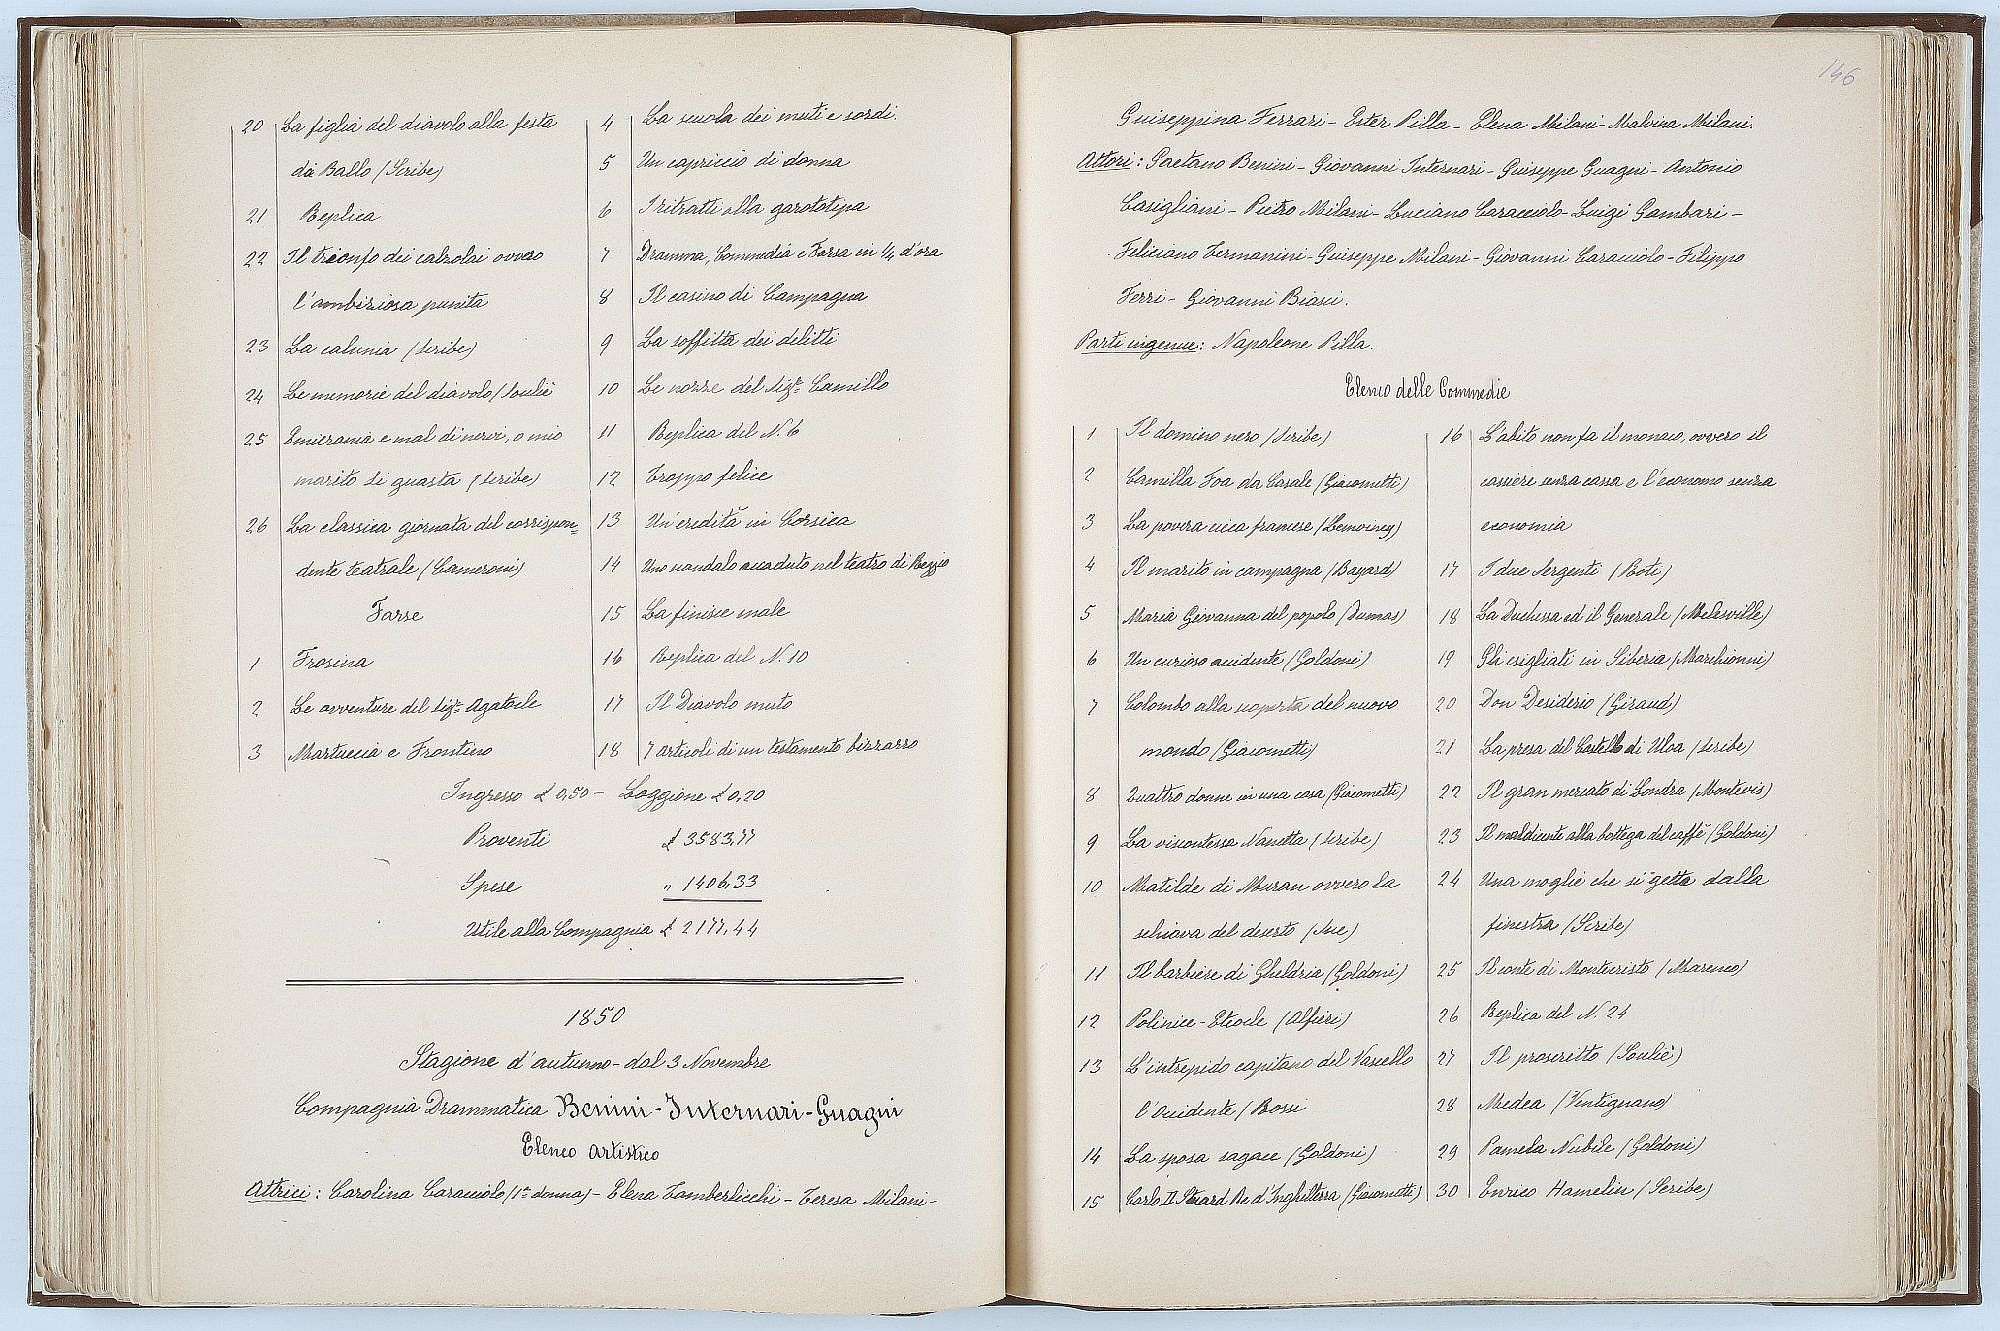 20 La figlia del diavolo alla festa
da Ballo (Scribe)
21 Replica
22 Il trionfo dei calzolai ovvero
l'ambiziosa punita
23 La calunia (Scribe)
24 Le memorie del diavolo (Souliè
25 Emicrania e mal di nervi, o mio
marito si guasta (Scribe)
26 La classica giornata del corrispon=
dente teatrale (Cameroni)
Farse
1 Frosina
2 Le avventure del Sigr. Agatocle
3 Martuccia e Frontino
4 La scuola dei muti e sordi.
5 Un capriccio di donna
6 I ritratti alla garototipa
7 Dramma, Commedia e Farsa in 1/4 d'ora
8 Il casino di Campagna
9 La soffitta dei delitti
10 Le nozze del Sigr. Camillo
11 Replica del N. 6
12 Troppo felice
13 Un'eredità in Corsica
14 Uno scandalo accaduto nel teatro di Reggio
15 La finisce male
16 Replica del N. 10
17 Il Diavolo muto
18 7 articoli di un testamento bizzarro
Ingresso £ 0,50 - Loggione £ 0,20
Proventi £ 3583,77
Spese " 1406,33
Utile alla Compagnia £ 2177,44
1850
Stagione d'autunno - dal 3 Novembre
Compagnia Drammatica Benini-Internari-Guagni
Elenco artistico
Attrici: Carolina Caracciolo (1a donna) - Elena Tamberlicchi - Teresa Milani -
146
Guiseppina Ferrari - Ester Pilla - Elena Milani - Malvina Milani.
Attori: Gaetano Benini - Giovanni Internari - Guiseppe Guagni - Antonio
Casigliani - Pietro Milani - Luciano Caracciolo - Luigi Gambari -
Feliciano Fermanini - Guiseppe Milani - Giovanni Caracciolo - Filippo
Ferri - Giovanni Biasci.
Parti ingenue: Napoleone Pilla.
Elenco delle Commedie
1 Il domino nero (Scribe)
2 Camilla Foa da Casale (Giacometti)
3 La povera cieca framese (Lemoiney)
4 Il marito in campagna (Bayard)
5 Maria Giovanna del popolo (Dumas)
6 Un curioso accidente (Goldoni)
7 Colombo alla scoperta del nuovo
mondo (Giacometti)
8 Quattro donne in una casa (Giacometti)
9 La viscontessa Nanetta (Scribe)
10 Matilde di Muran ovvero la
schiava del deserto (Sue)
11 Il barbiere di Gheldria (Goldoni)
12 Polinice-Eteocle (Alfieri)
13 L'intrepido capitano del Vascello
l'Occidente (Bossi
14 La sposa sagace (Goldoni)
15 Carlo II Stuard Re d'Inghilterra (Giacometti)
16 L'abito non fa il monaco, ovvero il
cassiere senza cassa e l'economo senza
economia
17 I due Sergenti (Roti)
18 La Duchessa ed il Generale (Melesville)
19 Gli esigliati in Siberia (Marchionni)
20 Don Desiderio (Giraud)
21 La presa del Castello di Uloa (Scribe)
22 Il gran mercato di Londra (Montevis)
23 Il maldicente alla bottega del caffè (Goldoni)
24 Una moglie che si getta dalla
finestra (Scribe)
25 Il conte di Montecristo (Marenco)
26 Replica del N. 24
27 Il proscritto (Souliè)
28 Medea (Ventignano)
29 Pamela Nubile (Goldoni)
30 Enrico Hamelin (Scribe)